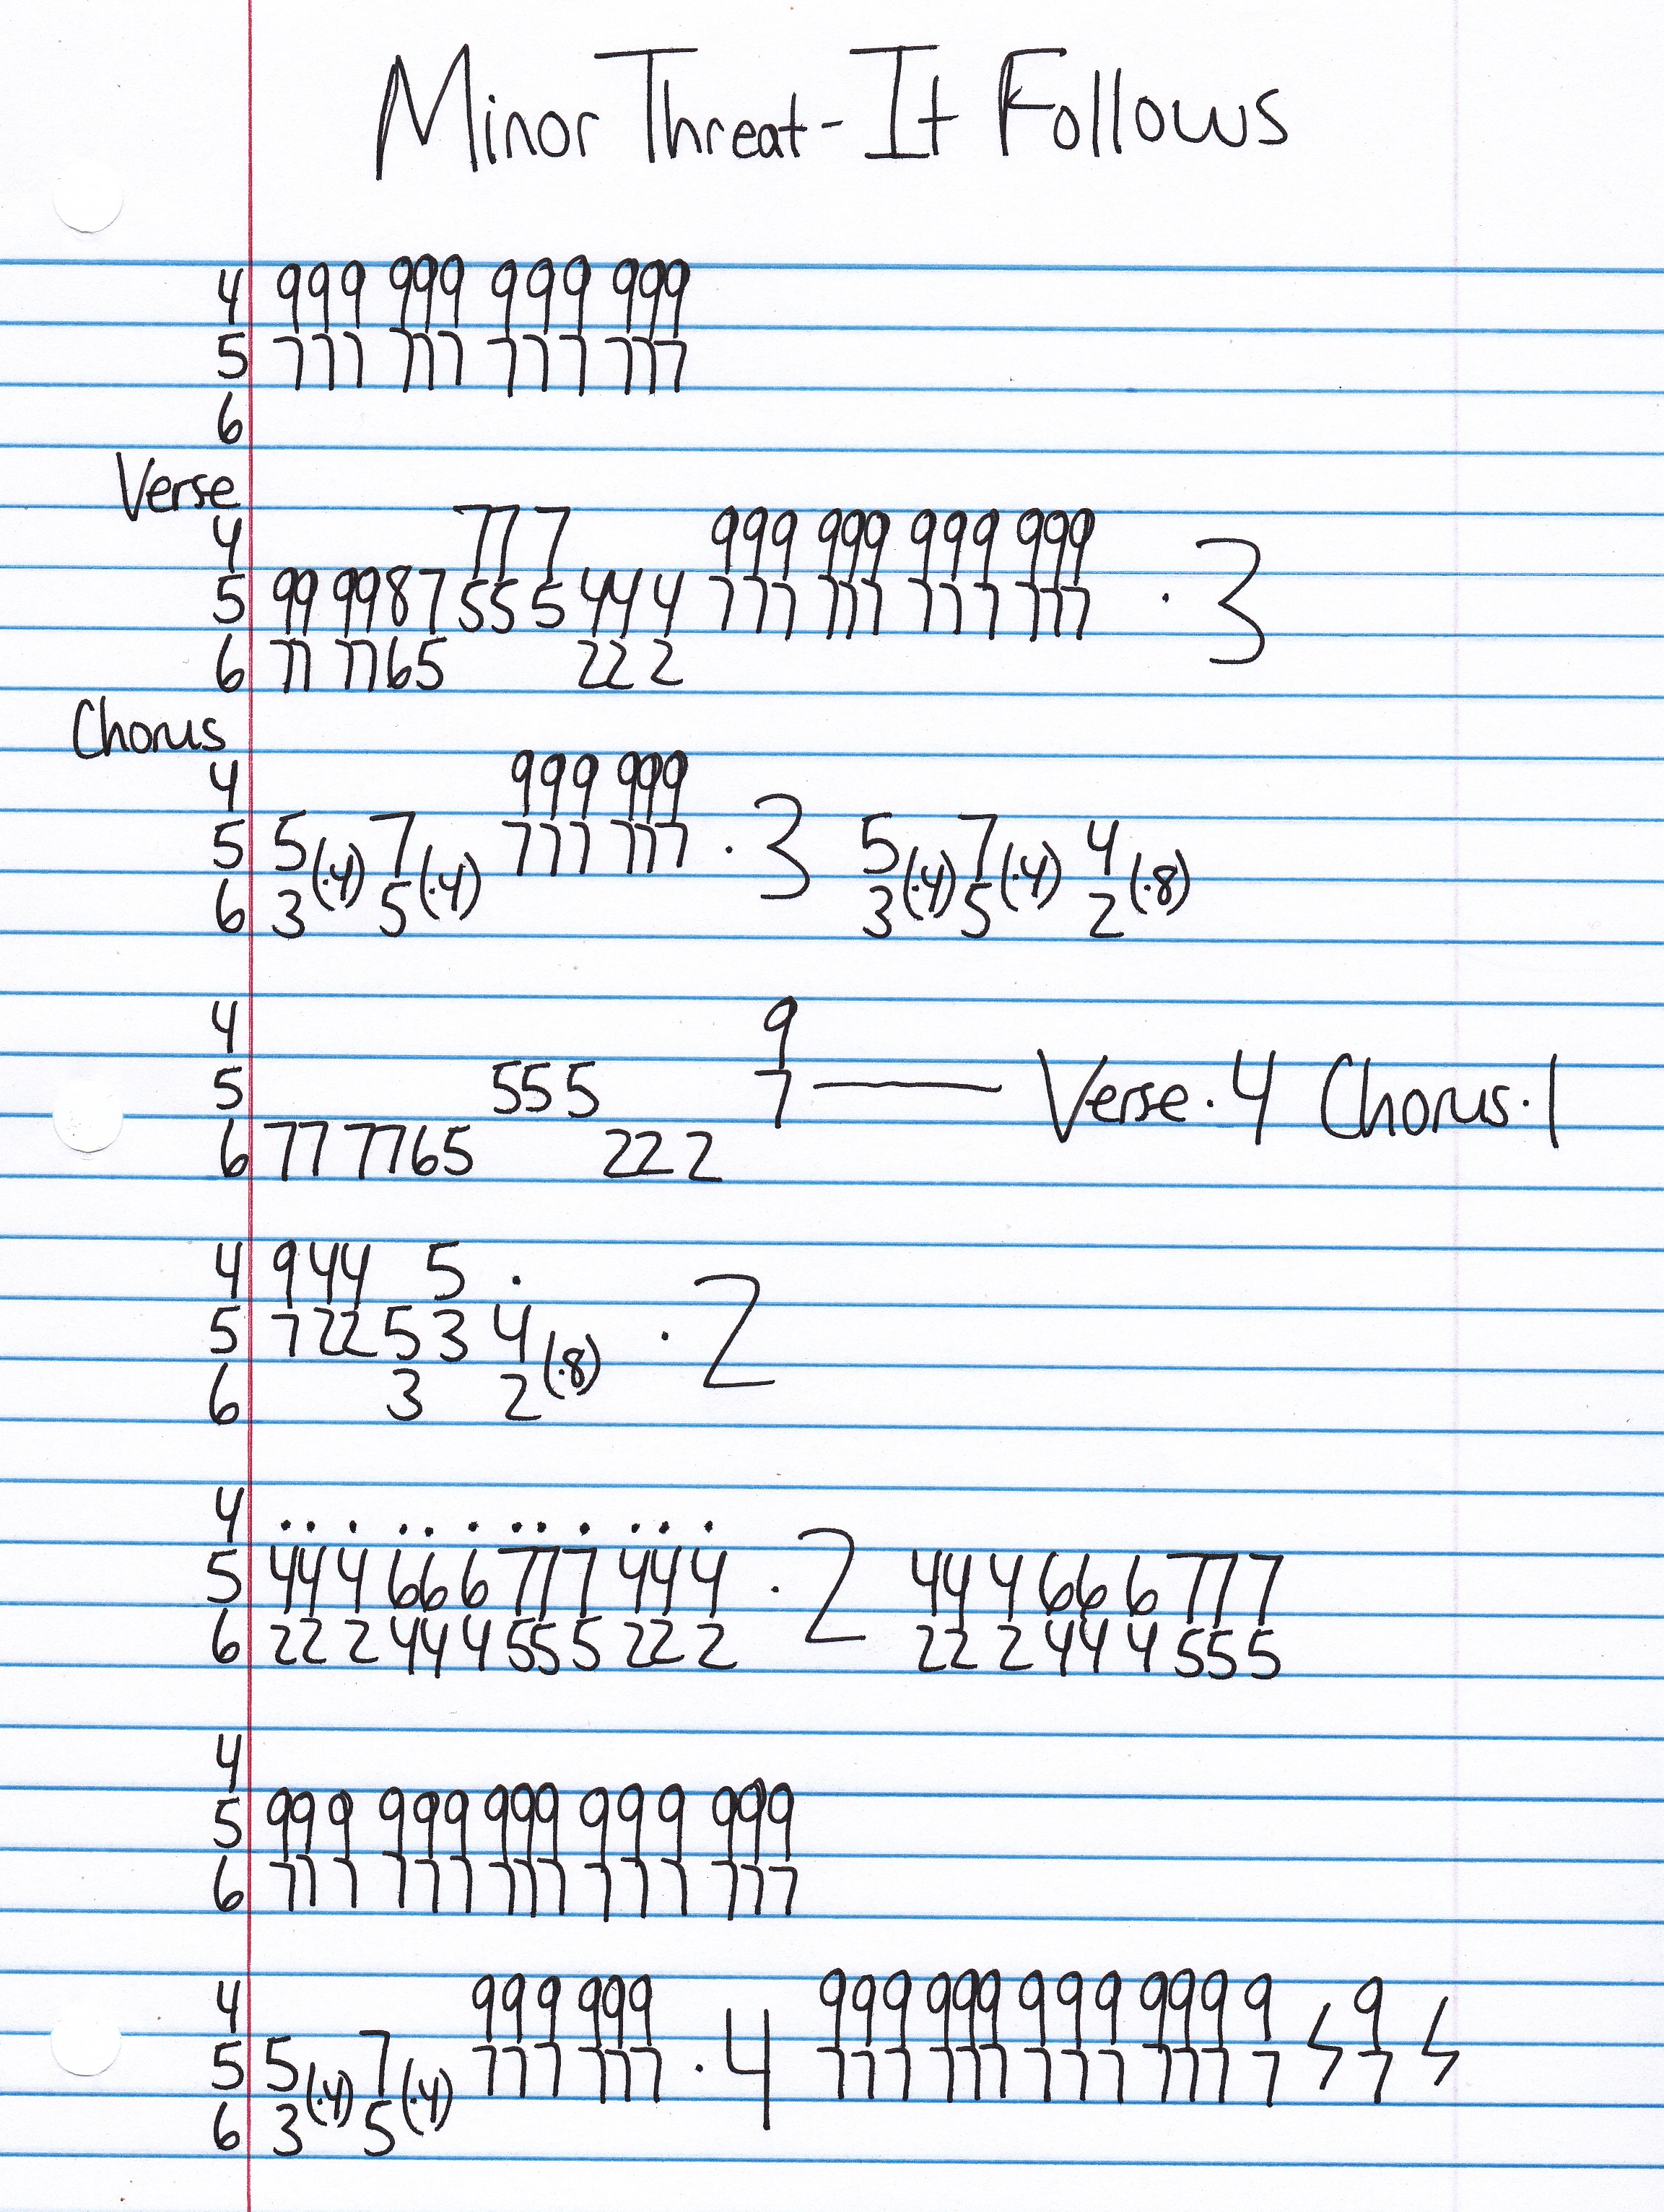 Minor Threat - It Follows
4 999 999 999 999
5 777 777 777 777
6
Verse
4 77 7 999 999 999 999
5 99 9987 55 5 44 4 777 777 777 777 · 3
6 77 7765 22 2
Chorus
4 999 999
5 5(·4) 7(·4) 777 777 · 3 5(·4) 7(·4) 4(·8)
6 3 5 3 5 2
4 9
5 555 7 — Verse · 4 Chorus · 1
6 77 7765 22 2
4 944 5 .
5 722 5 3 4(·8) · 2
6 3 2
4 .. . .. . .. . .. .
5 44 4 66 6 77 7 44 4 · 2 44 4 66 6 77 7
6 22 2 44 4 55 5 22 2 22 2 44 4 55 5
4
5 99 9 999 999 999 999
6 77 7 777 777 777 777
4 999 999 999 999 999 9999 9 ϟ 9 ϟ
5 5(·4) 7(·4) 777 777 · 4 777 777 777 777 7 7
6 3 5